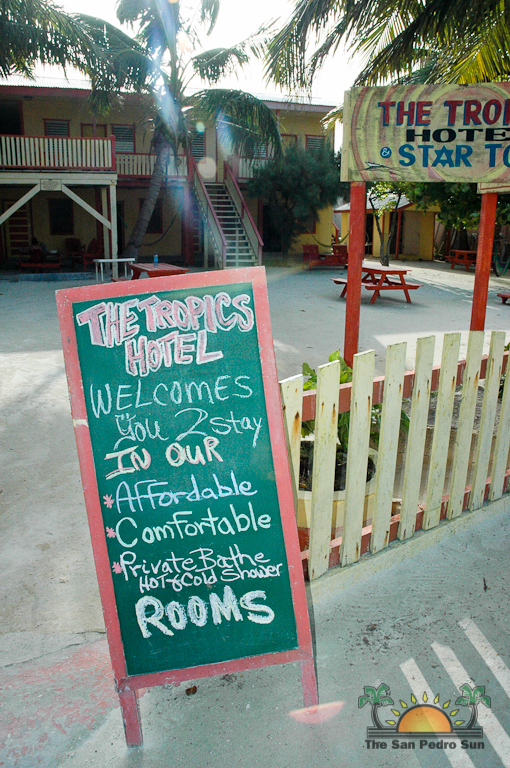 THE TROPICS
HOTEL
WELCOMES
You 2 stay
IN OUR
*Affordable
*Comfortable
*Private Bathe
HOT & Cold Shower
ROOMS
THE TROP
HOTE
& STAR TO
The San Pedro Sun